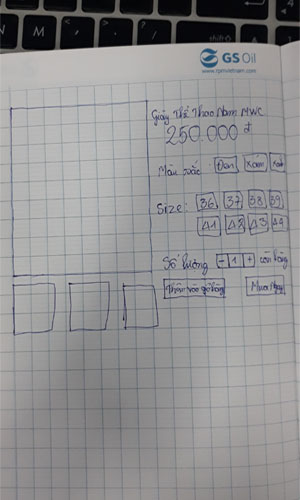 GS Oil
www.rpmvietnam.com
Giày Thể Thao Nam MWC
250.000 đ
Màu sắc: Đen Xám
Size: 36 37 38 39
41 42 43 44
Số lượng - 1 + còn hàng
Thêm vào giỏ hàng Mua Ngay